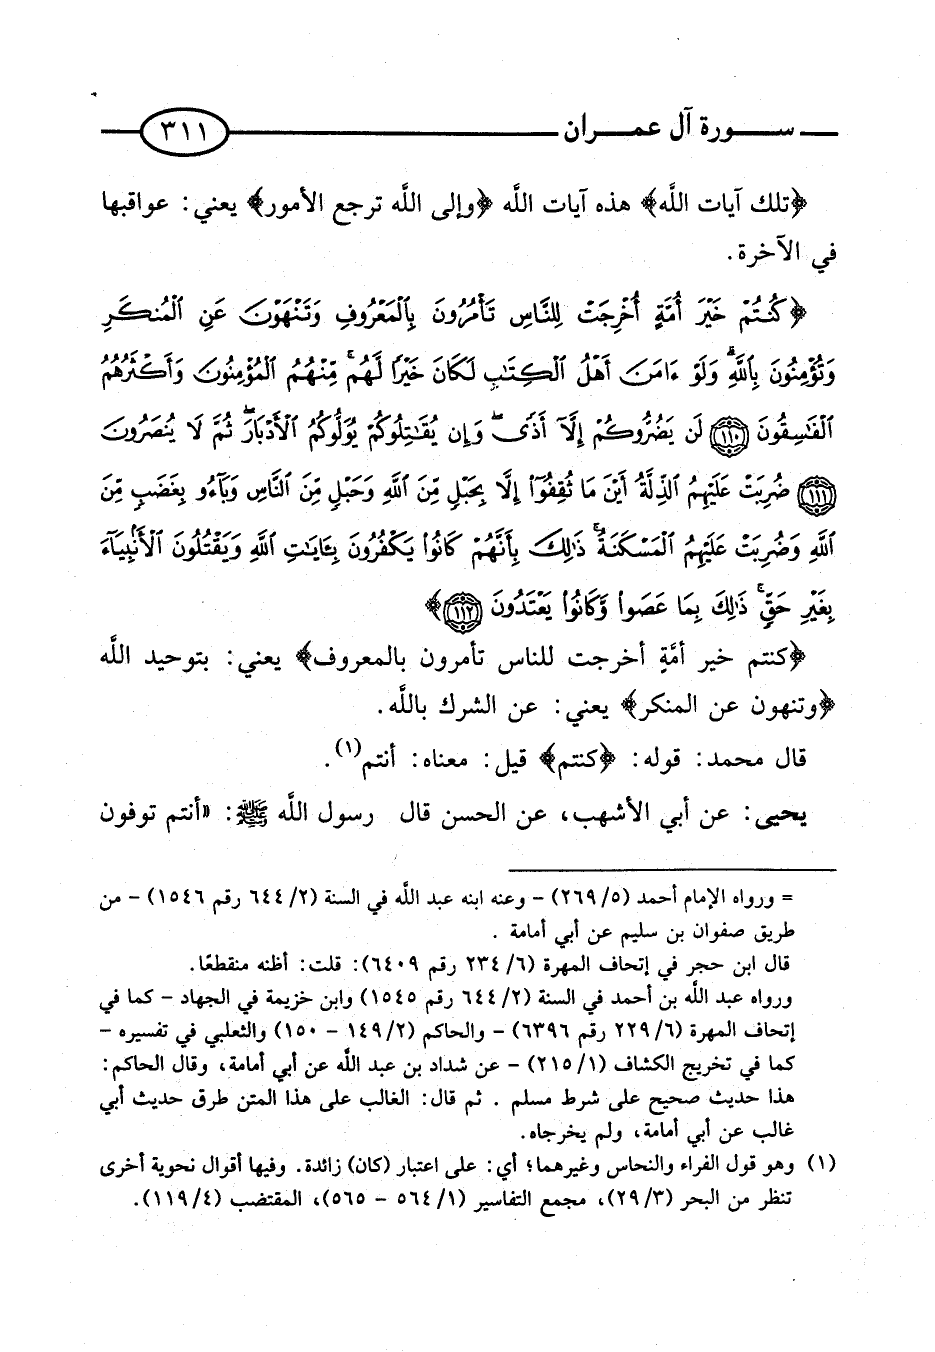 سورة آل عمران ٣١١
﴿تلك آيات اللَّه﴾ هذه آيات اللَّه ﴿وإلى اللَّه ترجع الأمور﴾ يعني: عواقبها
في الآخرة.
﴿كُنتُمْ خَيْرَ أُمَّةٍ أُخْرِجَتْ لِلنَّاسِ تَأْمُرُونَ بِالْمَعْرُوفِ وَتَنْهَوْنَ عَنِ الْمُنكَرِ
وَتُؤْمِنُونَ بِاللَّهِ ۗ وَلَوْ ءَامَنَ أَهْلُ الْكِتَٰبِ لَكَانَ خَيْرًا لَّهُم ۚ مِّنْهُمُ الْمُؤْمِنُونَ وَأَكْثَرُهُمُ
الْفَٰسِقُونَ ١١٠ لَن يَضُرُّوكُمْ إِلَّآ أَذًى ۖ وَإِن يُقَٰتِلُوكُمْ يُوَلُّوكُمُ الْأَدْبَارَ ۖ ثُمَّ لَا يُنصَرُونَ
١١١ ضُرِبَتْ عَلَيْهِمُ الذِّلَّةُ أَيْنَ مَا ثُقِفُوٓا۟ إِلَّا بِحَبْلٍ مِّنَ اللَّهِ وَحَبْلٍ مِّنَ النَّاسِ وَبَآءُو بِغَضَبٍ مِّنَ
اللَّهِ وَضُرِبَتْ عَلَيْهِمُ الْمَسْكَنَةُ ۚ ذَٰلِكَ بِأَنَّهُمْ كَانُوا۟ يَكْفُرُونَ بِـَٔايَٰتِ اللَّهِ وَيَقْتُلُونَ الْأَنۢبِيَآءَ
بِغَيْرِ حَقٍّ ۚ ذَٰلِكَ بِمَا عَصَوا۟ وَّكَانُوا۟ يَعْتَدُونَ ١١٢﴾
﴿كنتم خير أمَّةٍ أخرجت للناس تأمرون بالمعروف﴾ يعني: بتوحيد اللَّه
﴿وتنهون عن المنكر﴾ يعني: عن الشرك باللَّه.
قال محمد: قوله: ﴿كنتم﴾ قيل: معناه: أنتم(١).
يحيى: عن أبي الأشهب، عن الحسن قال رسول اللَّه ﷺ: «أنتم توفون
= ورواه الإمام أحمد (٥/ ٢٦٩) - وعنه ابنه عبد اللَّه في السنة (٢/ ٦٤٤ رقم ١٥٤٦) - من
طريق صفوان بن سليم عن أبي أمامة .
قال ابن حجر في إتحاف المهرة (٦/ ٢٣٤ رقم ٦٤٠٩): قلت: أظنه منقطعًا.
ورواه عبد اللَّه بن أحمد في السنة (٢/ ٦٤٤ رقم ١٥٤٥) وابن خزيمة في الجهاد - كما في
إتحاف المهرة (٦/ ٢٢٩ رقم ٦٣٩٦) - والحاكم (٢/ ١٤٩ - ١٥٠) والثعلبي في تفسيره -
كما في تخريج الكشاف (١/ ٢١٥) - عن شداد بن عبد اللَّه عن أبي أمامة، وقال الحاكم:
هذا حديث صحيح على شرط مسلم . ثم قال: الغالب على هذا المتن طرق حديث أبي
غالب عن أبي أمامة، ولم يخرجاه.
(١) وهو قول الفراء والنحاس وغيرهما؛ أي: على اعتبار (كان) زائدة. وفيها أقوال نحوية أخرى
تنظر من البحر (٣/ ٢٩)، مجمع التفاسير (١/ ٥٦٤ - ٥٦٥)، المقتضب (٤/ ١١٩).